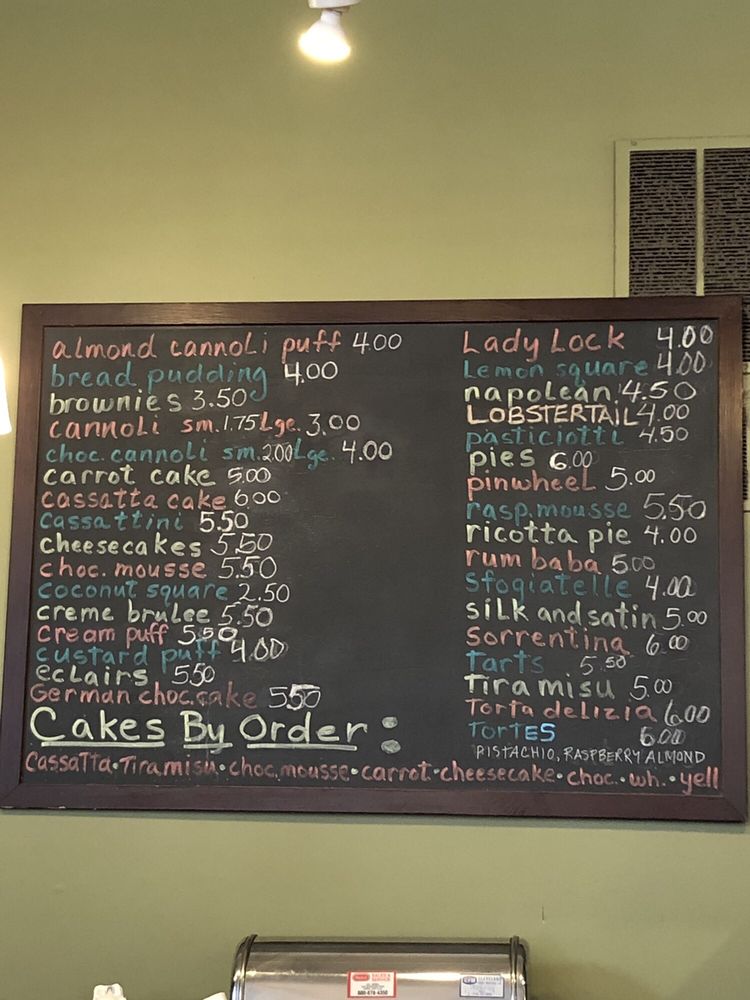 almond cannoli puff 4.00
bread pudding 4.00
brownies 3.50
cannoli sm. 1.75 Lge. 3.00
choc. cannoli sm. 2.00 Lge. 4.00
carrot cake 5.00
cassatta cake 6.00
cassattini 5.50
cheesecakes 5.50
choc. mousse 5.50
coconut square 2.50
creme brulee 5.50
cream puff 5.50
custard puff 4.00
eclairs 5.50
German choc. cake 5.50
Lady Lock 4.00
Lemon square 4.00
napolean 4.50
LOBSTERTAIL 4.00
pasticiotti 4.50
pies 6.00
pinwheel 5.00
rasp. mousse 5.50
ricotta pie 4.00
rum baba 5.00
Sfogiatelle 4.00
silk and satin 5.00
Sorrentina 6.00
Tarts 5.50
Tiramisu 5.00
Torta delizia 6.00
TortES 6.00
PISTACHIO, RASPBERRY ALMOND
Cakes By Order:
CassaTTa • Tiramisu • choc. mousse • carrot • cheesecake • choc. • wh. • yell